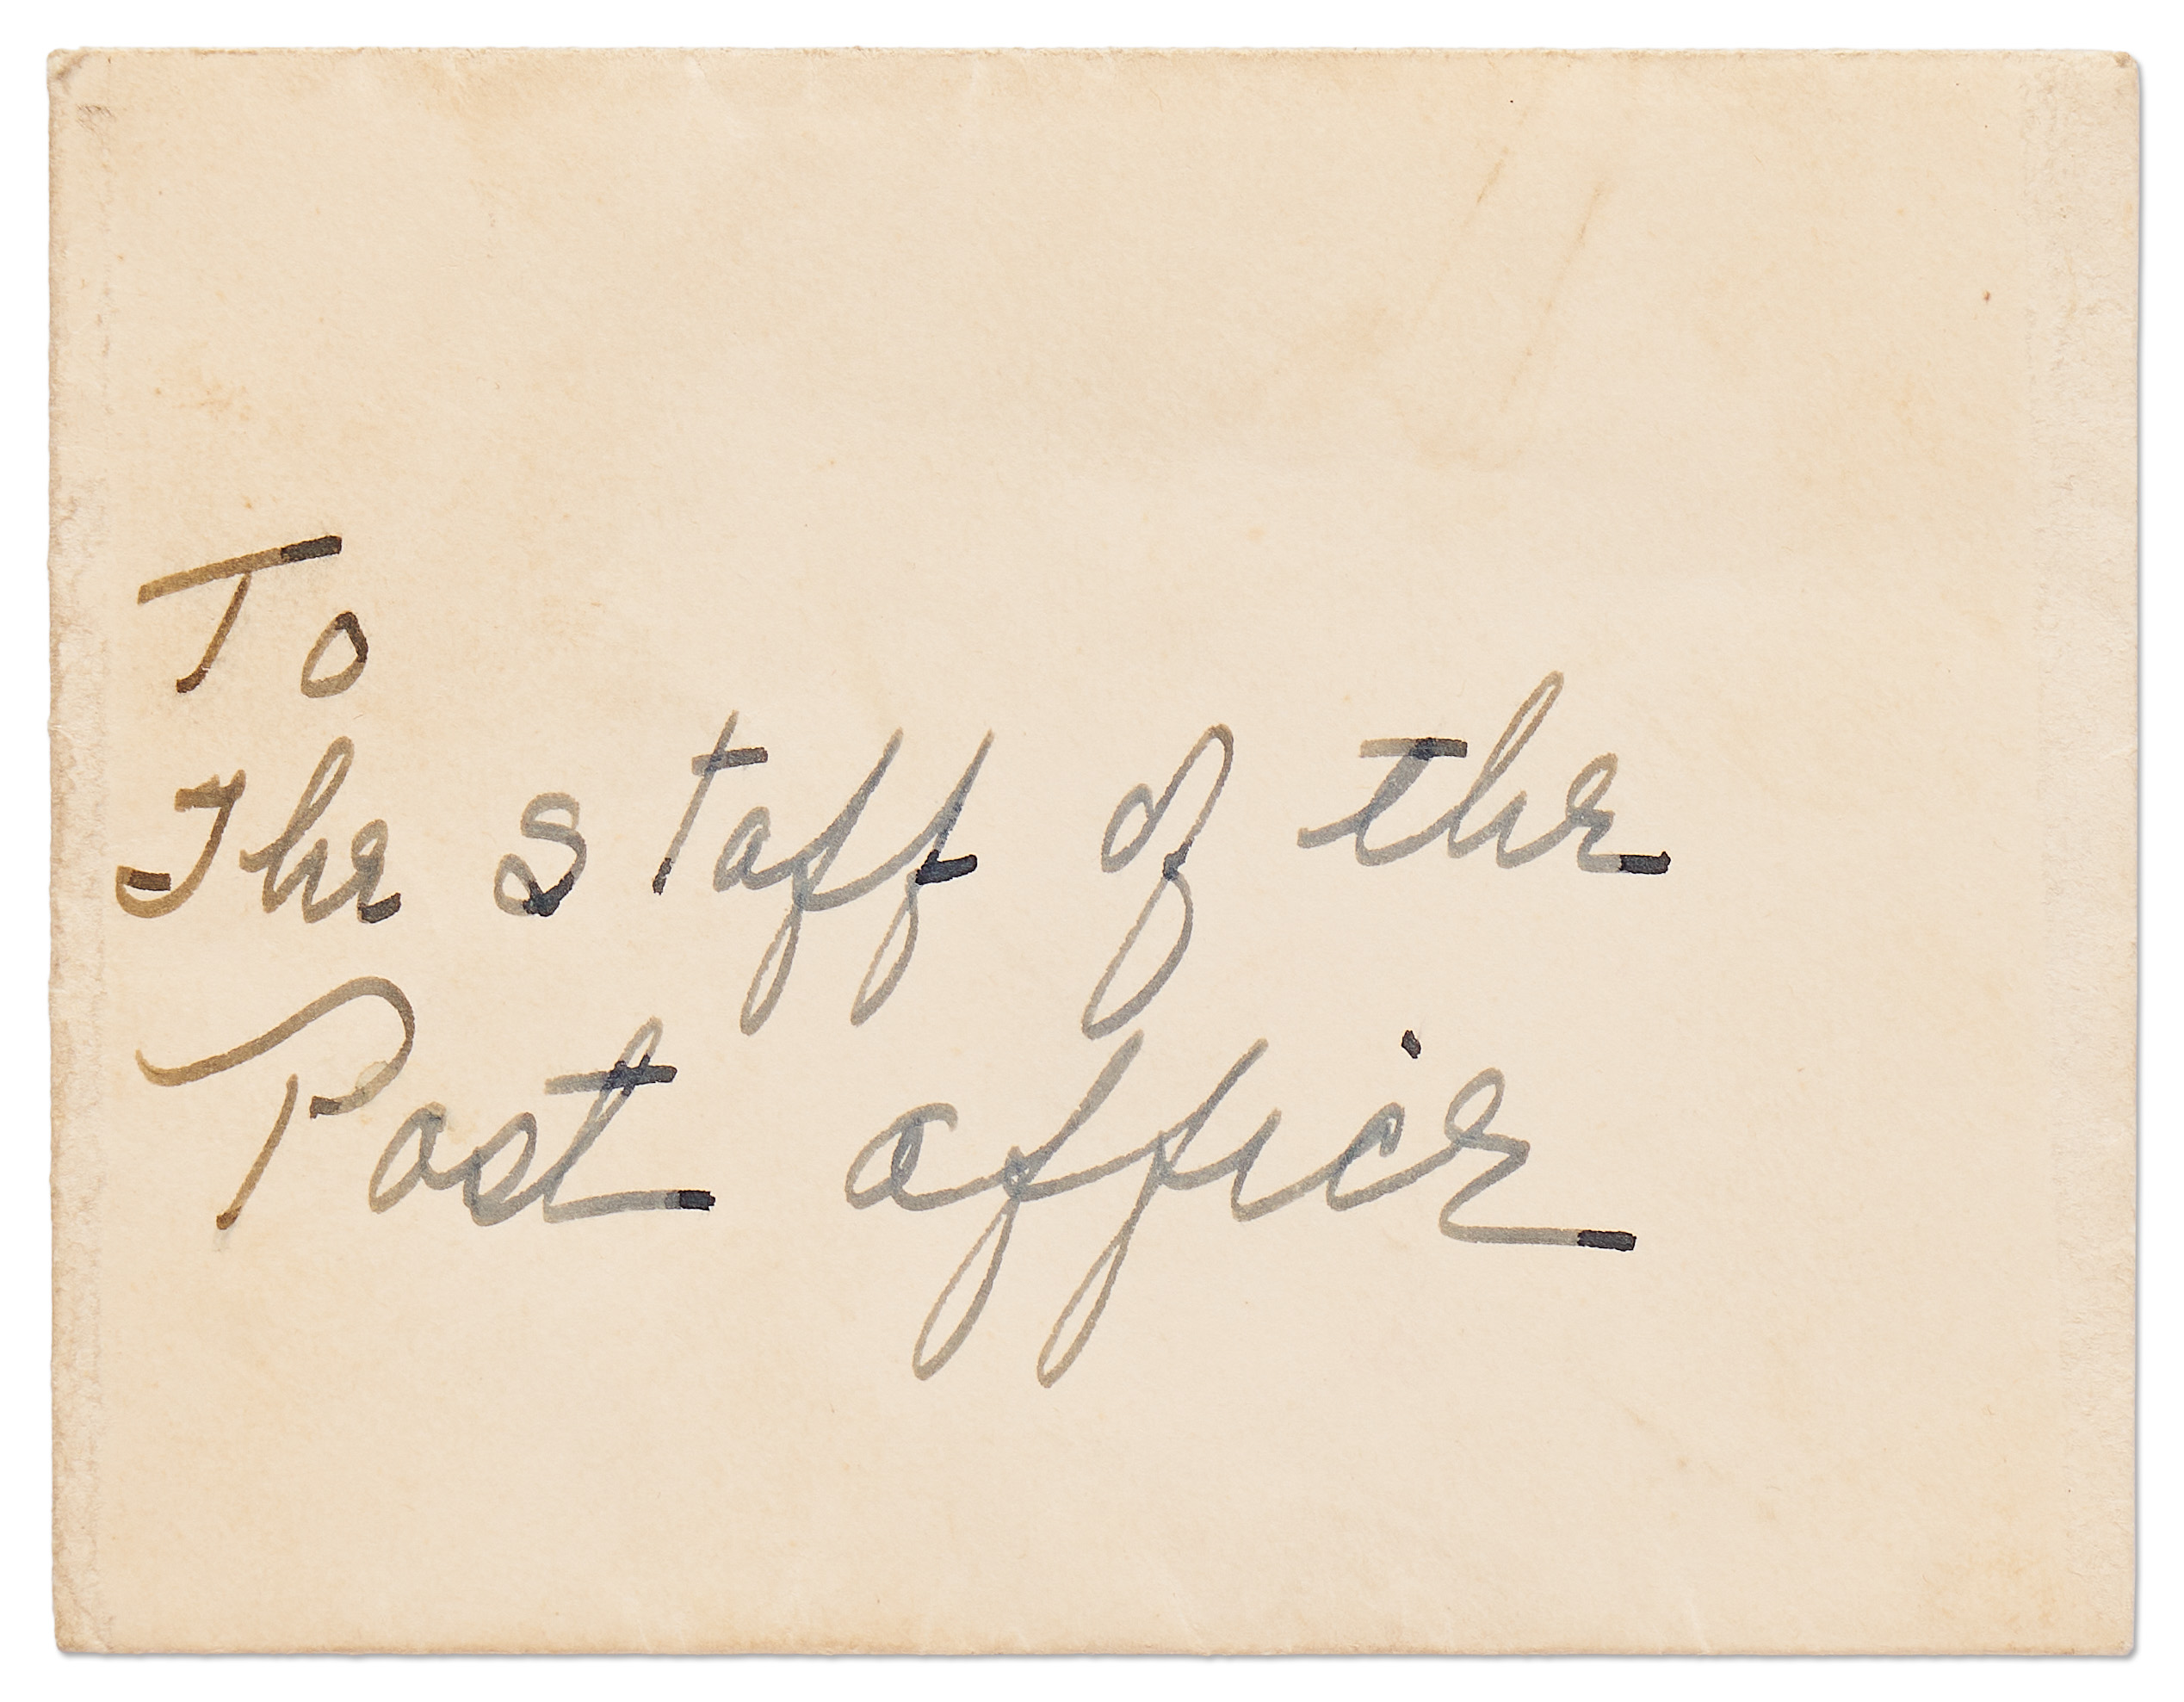 To
The staff of the
Post office